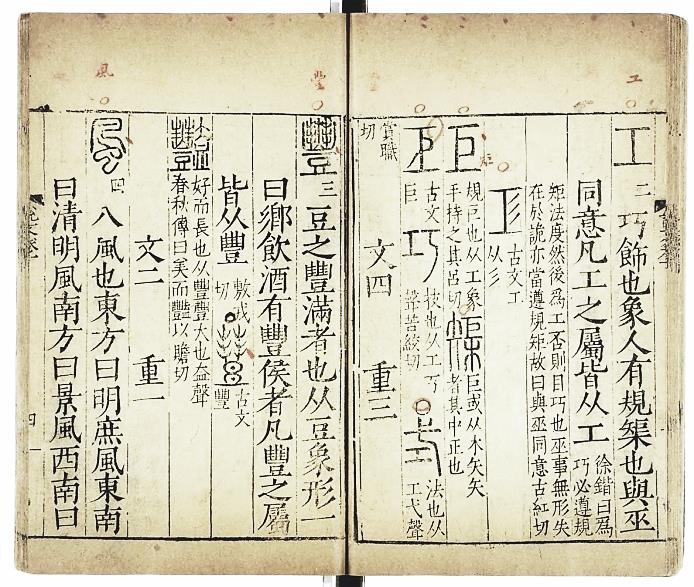 工
工 二 巧飾也象人有規榘也與巫
同意凡工之屬皆从工 徐鍇曰爲
巧必遵規
矩法度然後爲工否則目巧也巫事無形失
在於詭亦當遵規矩故曰與巫同意古紅切
古文工
从彡
巨 規巨也从工象
手持之其呂切
榘 巨或从木矢矢
者其中正也
古文
巨
巧 技也从工丂
聲苦絞切
式 法也从工
弋聲
賞職
切
文四 重三
豐
豐 三 豆之豐滿者也从豆象形一
曰鄉飲酒有豐侯者凡豐之屬
皆从豐 敷戎
切
古文
豐
豔 好而長也从豐豐大也盇聲
春秋傳曰美而豔以贍切
文二 重一
風
風 四 八風也東方曰明庶風東南
曰清明風南方曰景風西南曰
四